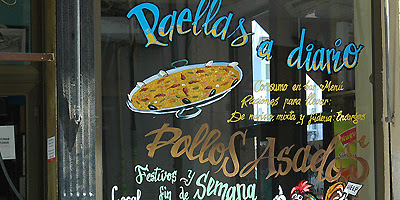 Paellas
a diario
Consumo en su Menú
Raciones para llevar:
De marisco, mixta y fideua: Encargos
Pollos Asados
Festivos y
fin de Semana
Local